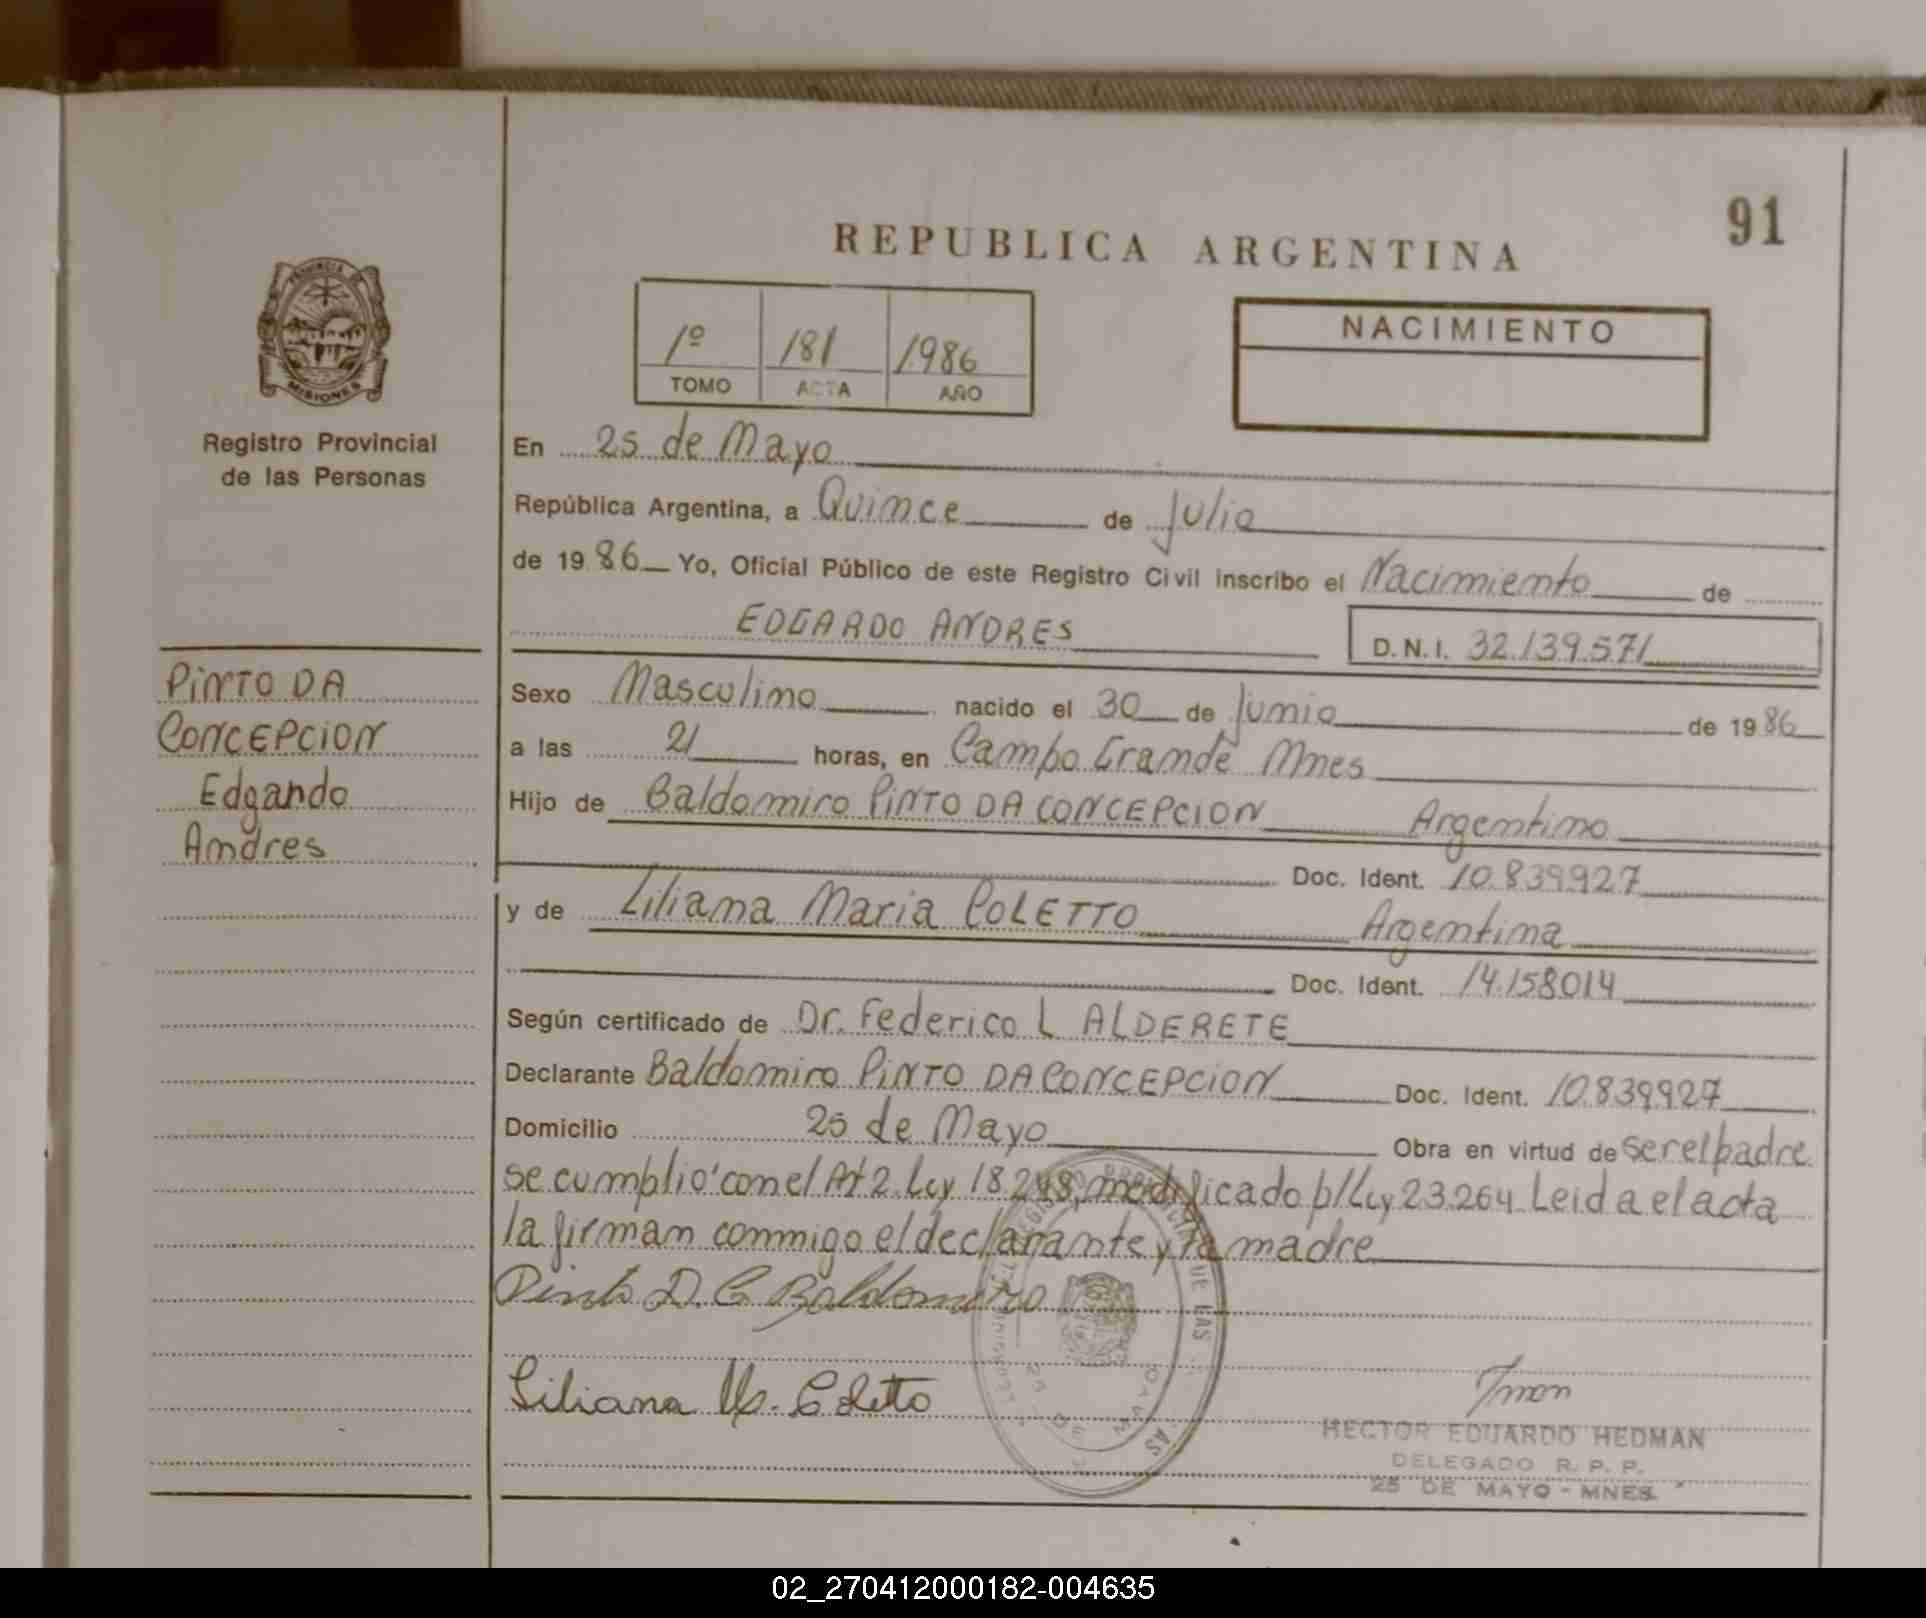 91
REPUBLICA ARGENTINA
PROVINCIA
MISIONES
Registro Provincial
de las Personas
1º 181 1986
TOMO ACTA AÑO
NACIMIENTO
En 25 de Mayo
República Argentina, a Quince de Julio
de 1986 Yo, Oficial Público de este Registro Civil inscribo el Nacimiento de
EDGARDO ANDRES D.N.I. 32.139.571
PINTO DA
CONCEPCION
Edgardo
Andres
Sexo Masculino nacido el 30 de Junio de 1986
a las 21 horas, en Campo Grande Mnes
Hijo de Baldomiro PINTO DA CONCEPCION Argentino
Doc. Ident. 10.839927
y de Liliana Maria COLETTO Argentina
Doc. Ident. 14.158014
Según certificado de Dr. Federico L ALDERETE
Declarante Baldomiro PINTO DA CONCEPCION Doc. Ident. 10.839927
Domicilio 25 de Mayo Obra en virtud de ser el padre
se cumplio' con el Art 2 Ley 18.248, modificado p/Ley 23.264 Leida el acta
la firman conmigo el declarante y la madre
Pinto D. C. Baldomiro
Liliana M. Coletto
HECTOR EDUARDO HEDMAN
DELEGADO R. P. P.
25 DE MAYO - MNES.
02_270412000182-004635